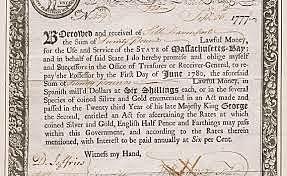 1777.
Borrowed and received of
the Sum of Lawful Money,
for the Use and Service of the State of Massachusetts-Bay;
and in behalf of said State I do hereby promise and oblige myself
and Successors in the Office of Treasurer or Receiver-General, to
repay the Possessor by the First Day of June 1780, the aforesaid
Sum of Lawful Money, in
Spanish mill'd Dollars at Six Shillings each, or in the several
Species of coined Silver and Gold enumerated in an Act made and
passed in the Twenty third Year of his late Majesty King George
the Second, entitled an Act for ascertaining the Rates at which
coined Silver and Gold, English Half Pence and Farthings may pass
within this Government, and according to the Rates therein
mentioned, with Interest to be paid annually at Six per Cent.
Witness my Hand,
D. Jeffries